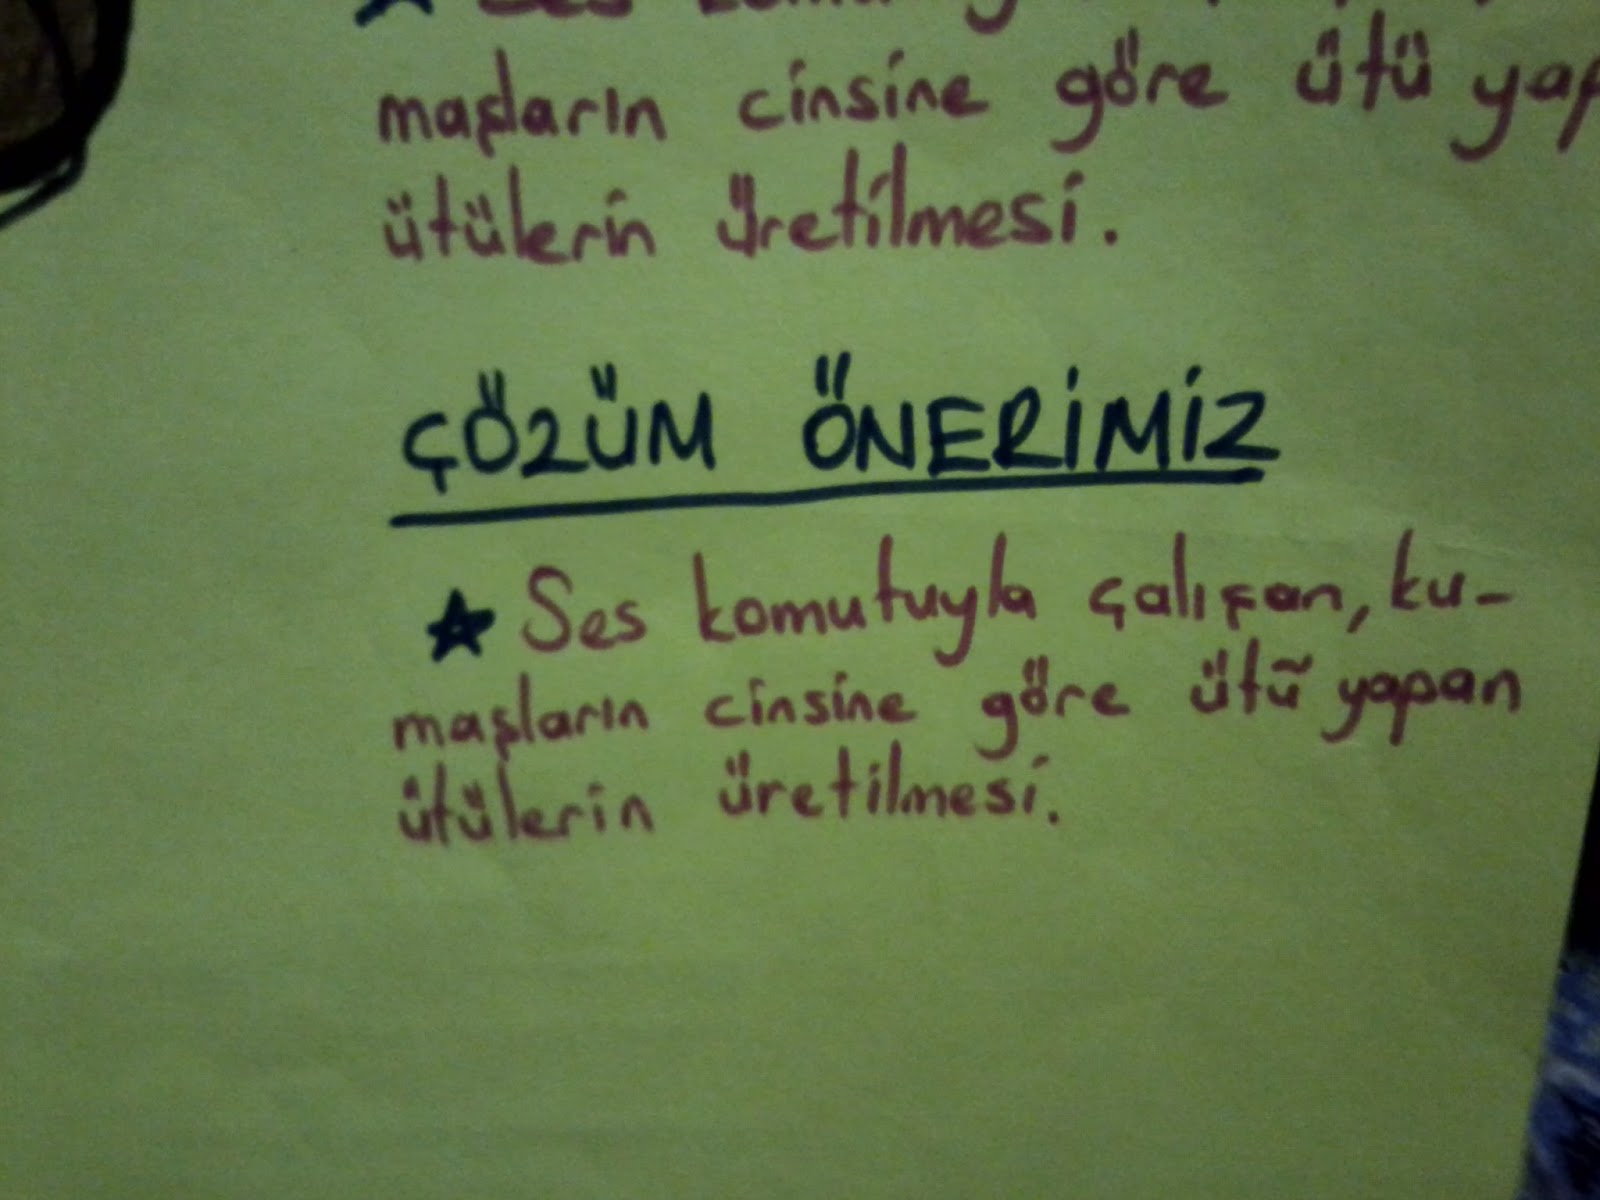 ★ Ses
maşların cinsine göre ütü
ütülerin üretilmesi.
ÇÖZÜM ÖNERİMİZ
★ Ses komutuyla çalışan, ku-
maşların cinsine göre ütü yapan
ütülerin üretilmesi.